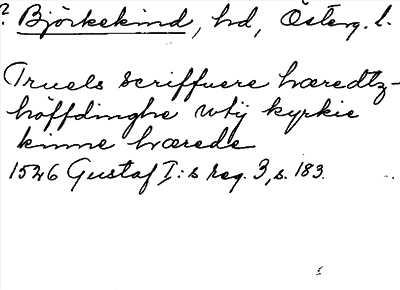 ? Björkekind, hd, Österg. l.
Truels Scriffuere hæredtz-
höffdinghe wtij kyrkie
kinne hærede
1526 Gustaf I:s reg. 3, s. 183.